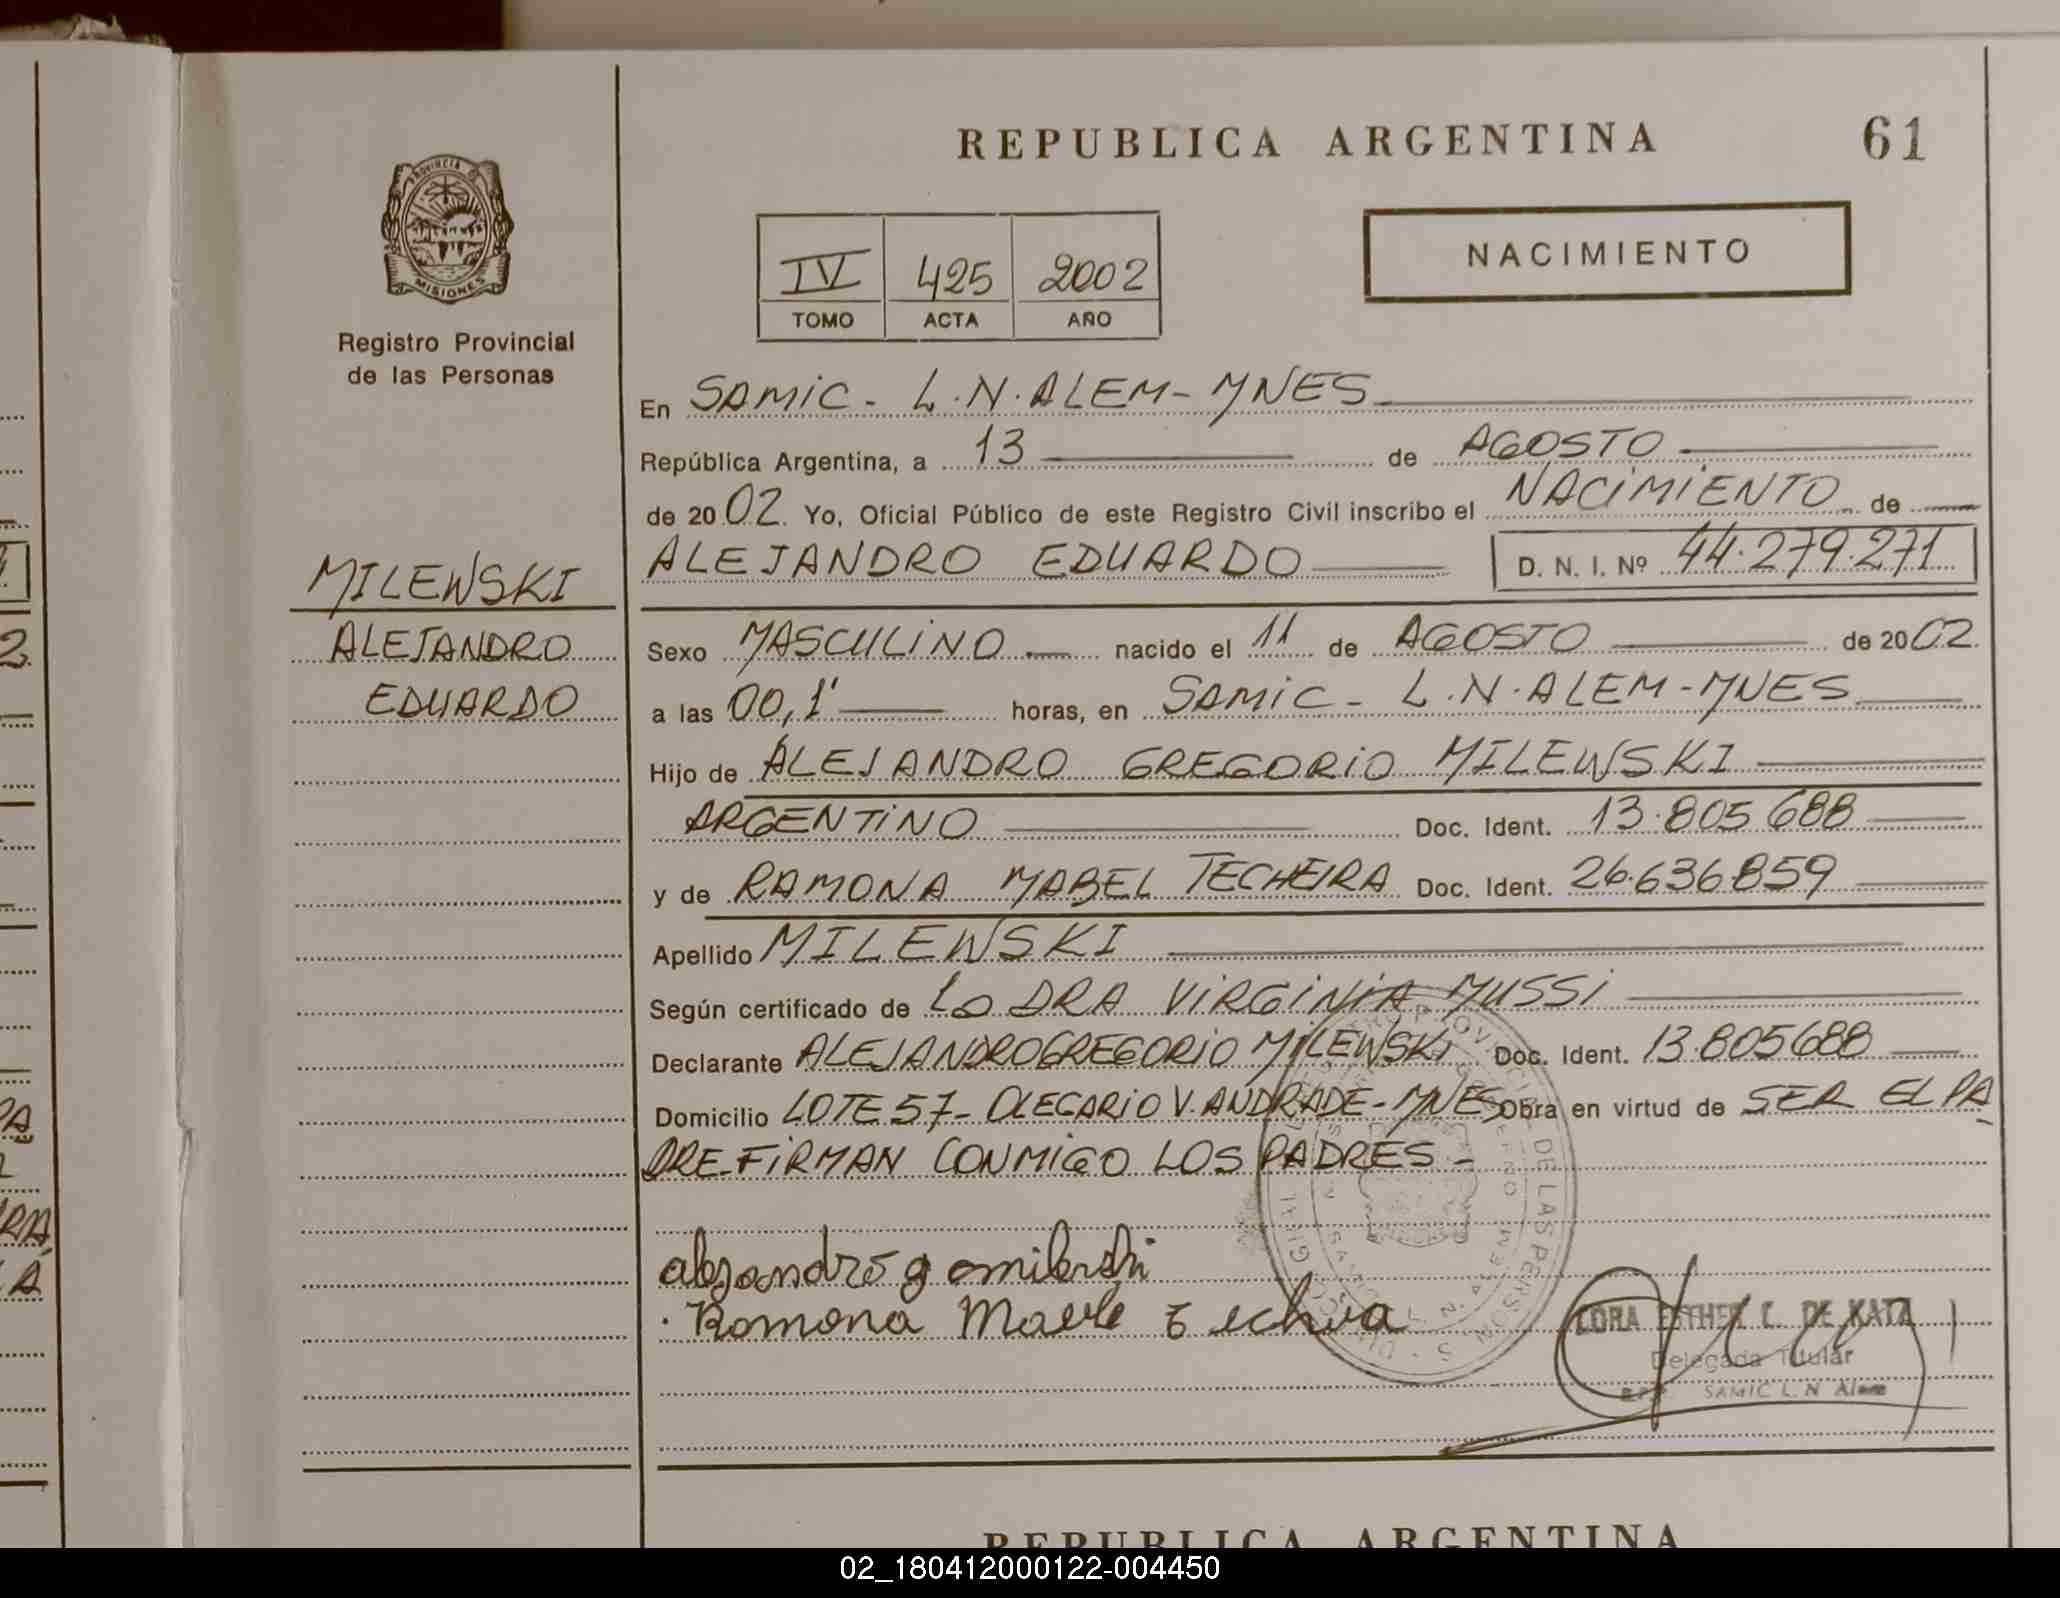 REPUBLICA ARGENTINA
61
PROVINCIA DE
MISIONES
Registro Provincial
de las Personas
NACIMIENTO
IV 425 2002
TOMO ACTA AÑO
En SAMIC - L.N.ALEM - MNES
República Argentina, a 13 de AGOSTO
de 2002. Yo, Oficial Público de este Registro Civil inscribo el NACIMIENTO de
ALEJANDRO EDUARDO D. N. I. Nº 44.279.271
MILEWSKI
ALEJANDRO
EDUARDO
Sexo MASCULINO nacido el 11 de AGOSTO de 2002
a las 00,1' horas, en SAMIC - L.N.ALEM - MNES
Hijo de ALEJANDRO GREGORIO MILEWSKI
ARGENTINO Doc. Ident. 13.805688
y de RAMONA MABEL TECHEIRA Doc. Ident. 26.636859
Apellido MILEWSKI
Según certificado de La DRA VIRGINIA MUSSI
Declarante ALEJANDRO GREGORIO MILEWSKI Doc. Ident. 13.805688
Domicilio LOTE 57 - OLEGARIO V. ANDRADE - MNES Obra en virtud de SER EL PA
DRE - FIRMAN CONMIGO LOS PADRES -
alejandro g milewski
Ramona
DE LAS PERSONAS
ESTHER C. DE KATZ
Delegada Titular
SAMIC L. N Alem
REPUBLICA ARGENTINA
02_180412000122-004450